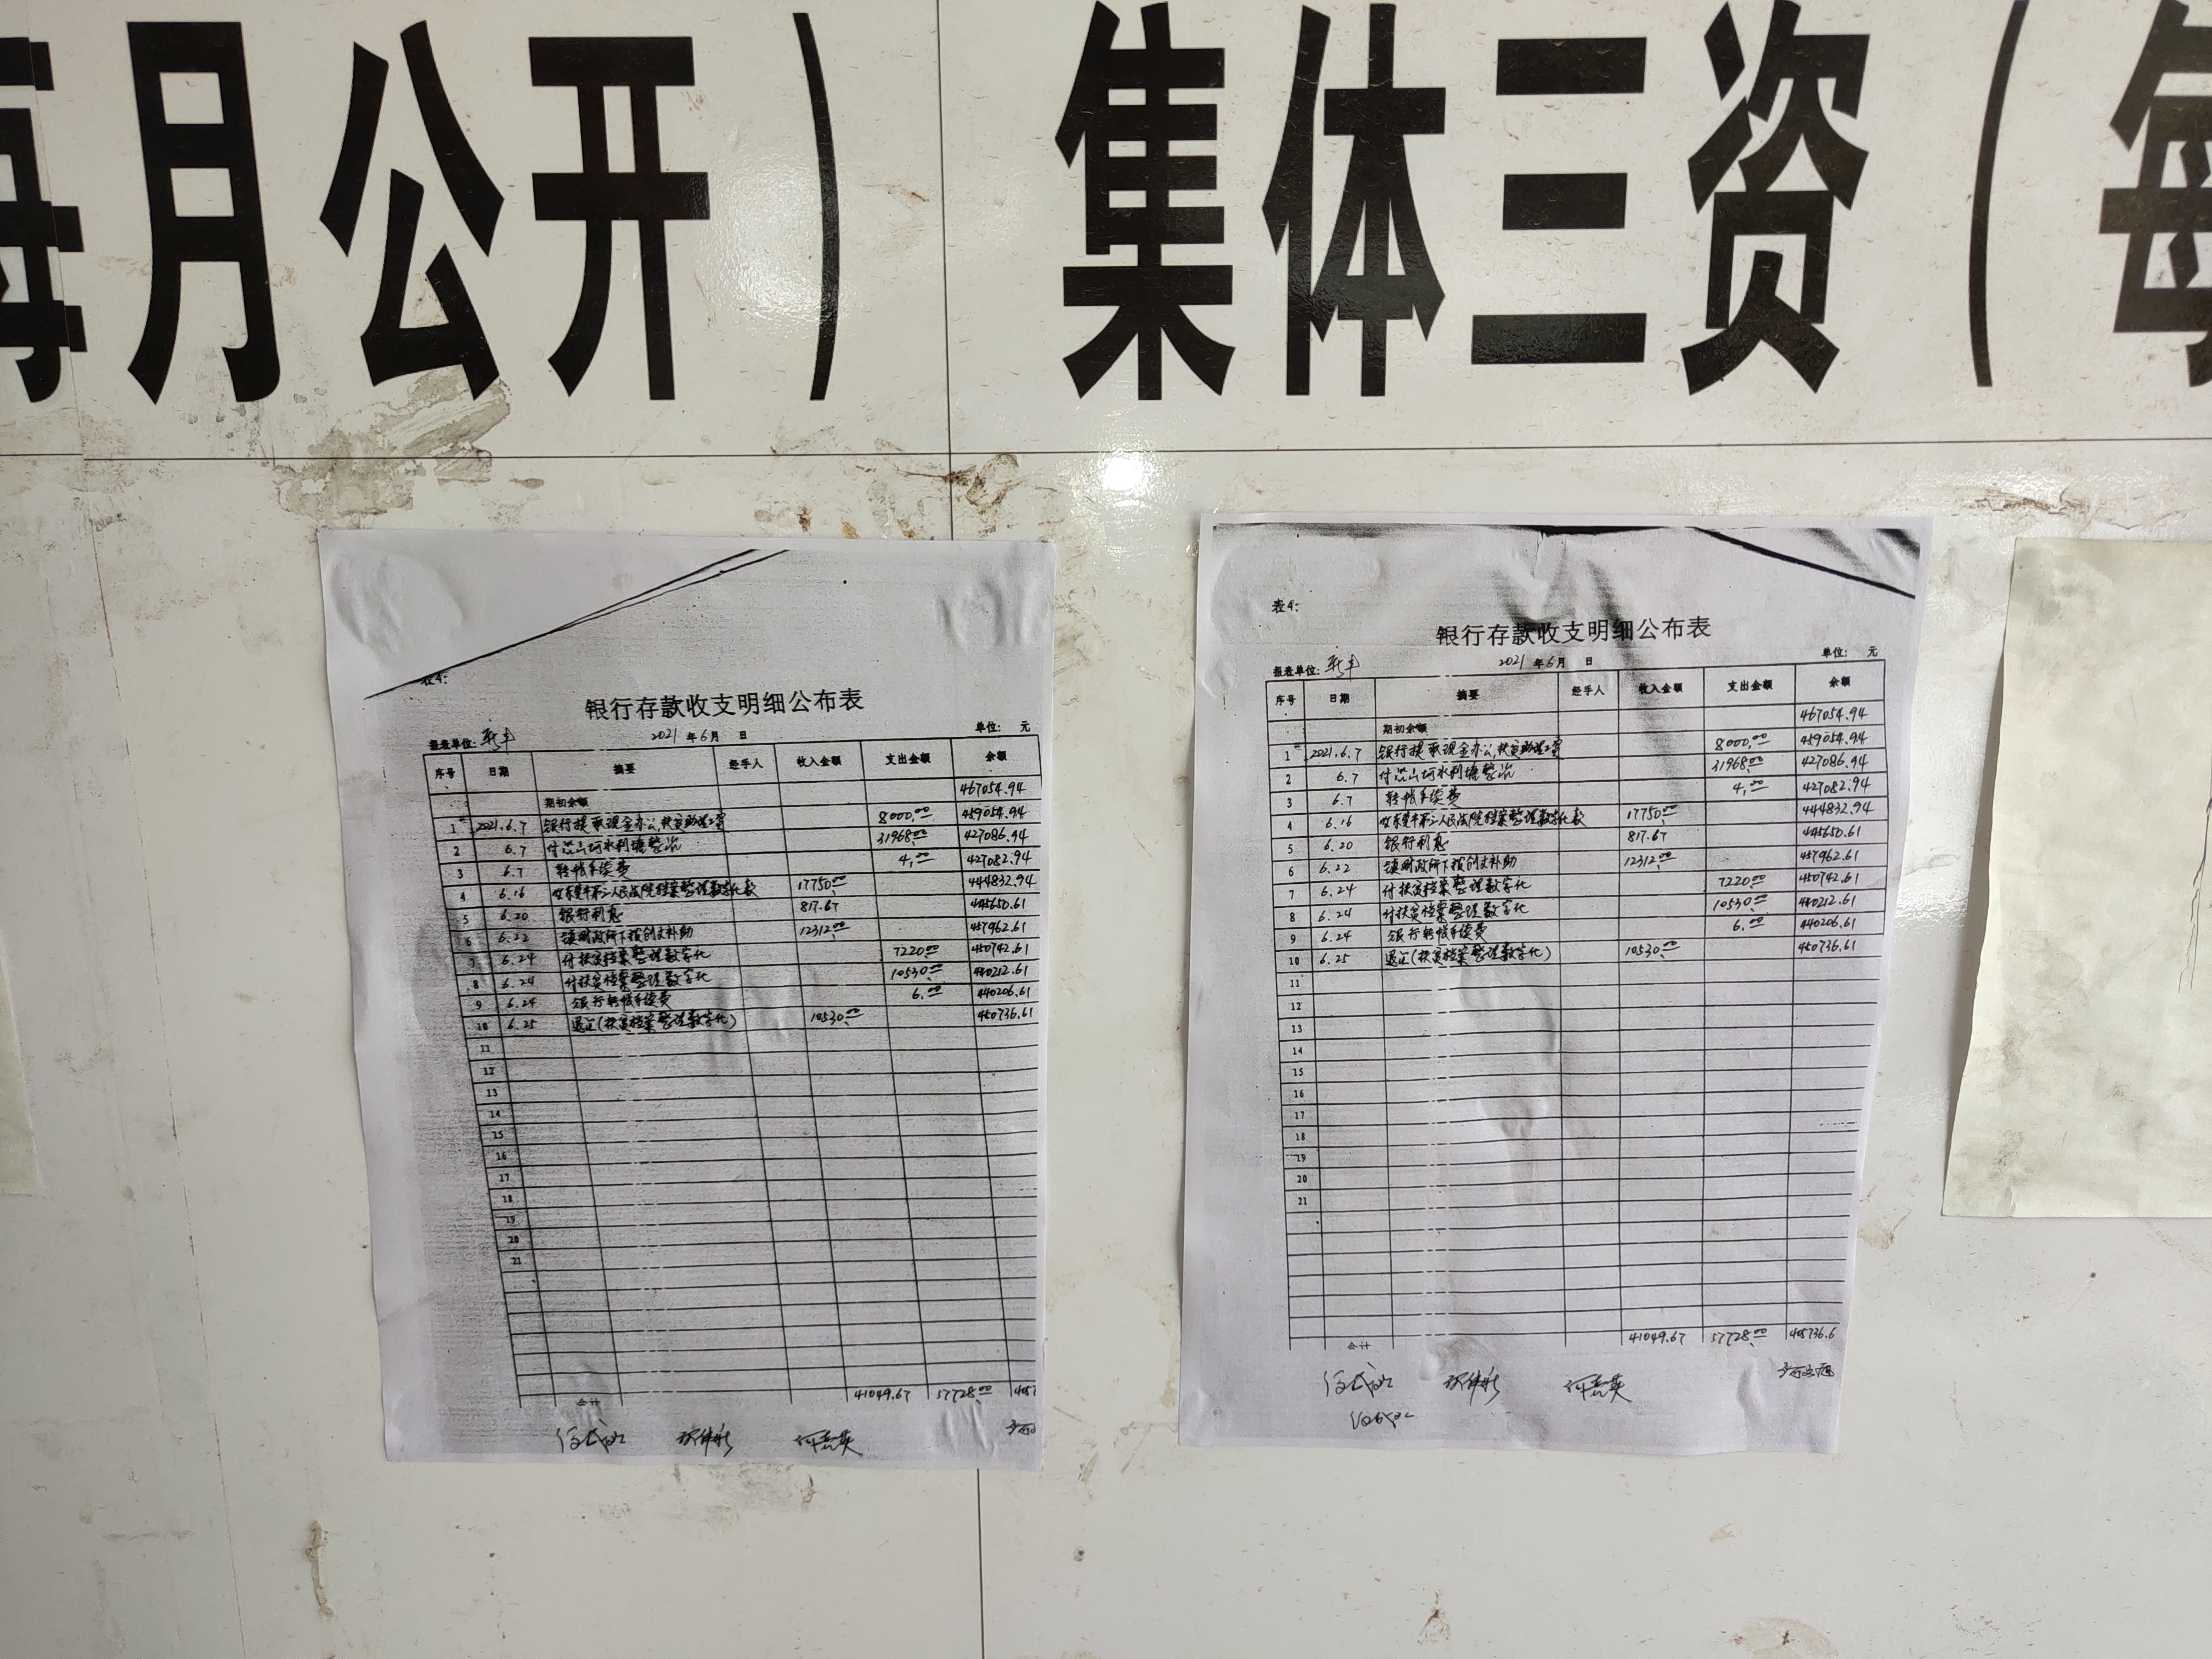 每月公开） 集体三资（每
表4:
银行存款收支明细公布表
报表单位: 新丰 2021 年 6 月 日 单位: 元
序号 日期 摘要 经手人 收入金额 支出金额 余额
期初余额 467054.94
1 2021.6.7 银行提取现金办公,扶贫助理工资 8000.00 459054.94
2 6.7 水利塘整治 31968.00 427086.94
3 6.7 转帐手续费 4.00 427082.94
4 6.16 收东莞市第二人民法院档案整理数字化款 17750.00 444832.94
5 6.20 银行利息 817.67 445650.61
6 6.22 镇财政所下拨创文补助 12312.00 457962.61
7 6.24 付扶贫档案整理数字化 7220.00 450742.61
8 6.24 付扶贫档案整理数字化 10530.00 440212.61
9 6.24 银行转帐手续费 6.00 440206.61
10 6.25 退汇(扶贫档案整理数字化) 10530.00 450736.61
11
12
13
14
15
16
17
18
19
20
21
合计 41049.67 57728.00 4057
表4:
银行存款收支明细公布表
报表单位: 新丰 2021 年 6 月 日 单位: 元
序号 日期 摘要 经手人 收入金额 支出金额 余额
期初余额 467054.94
1 2021.6.7 银行提取现金办公,扶贫助理工资 8000.00 459054.94
2 6.7 水利塘整治 31968.00 427086.94
3 6.7 转帐手续费 4.00 427082.94
4 6.16 收东莞市第二人民法院档案整理数字化款 17750.00 444832.94
5 6.20 银行利息 817.67 445650.61
6 6.22 镇财政所下拨创文补助 12312.00 457962.61
7 6.24 付扶贫档案整理数字化 7220.00 450742.61
8 6.24 付扶贫档案整理数字化 10530.00 440212.61
9 6.24 银行转帐手续费 6.00 440206.61
10 6.25 退汇(扶贫档案整理数字化) 10530.00 450736.61
11
12
13
14
15
16
17
18
19
20
21
合计 41049.67 57728.00 405736.6